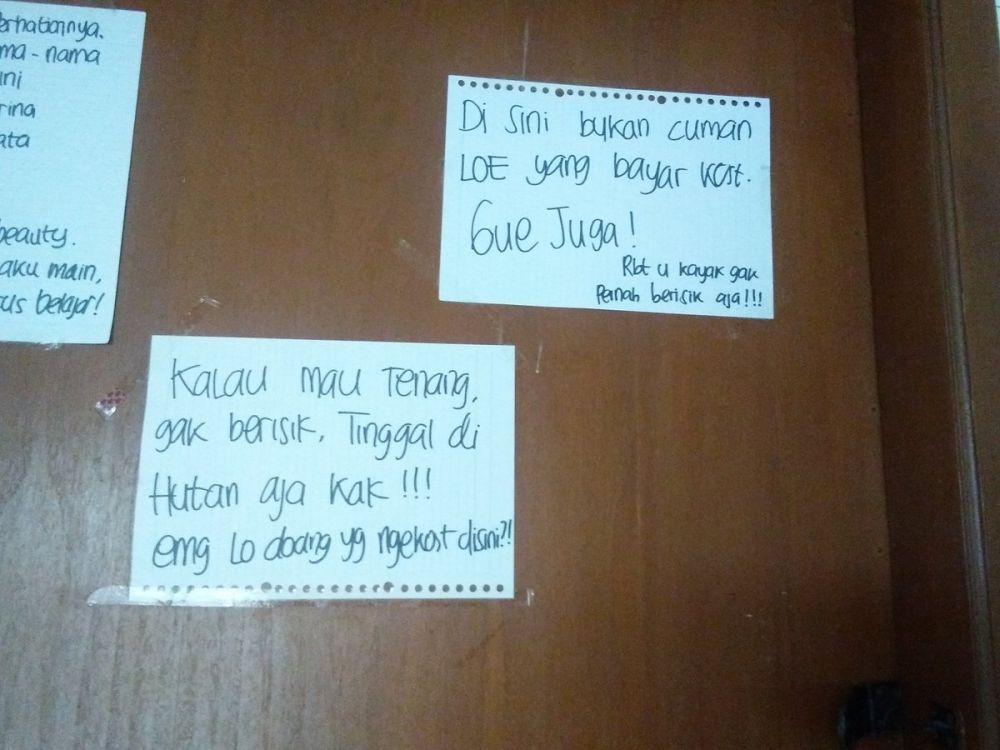 erhatiannya.
ma - nama
ini
rina
ata
beauty.
aku main,
us belajar!
Di Sini bukan cuman
LOE yang bayar kost.
Gue Juga!
Rbt u kayak gak
Pernah berisik aja!!!
Kalau mau Tenang,
gak berisik, Tinggal di
Hutan aja kak!!!
emg Lo doang yg ngekost disini?!